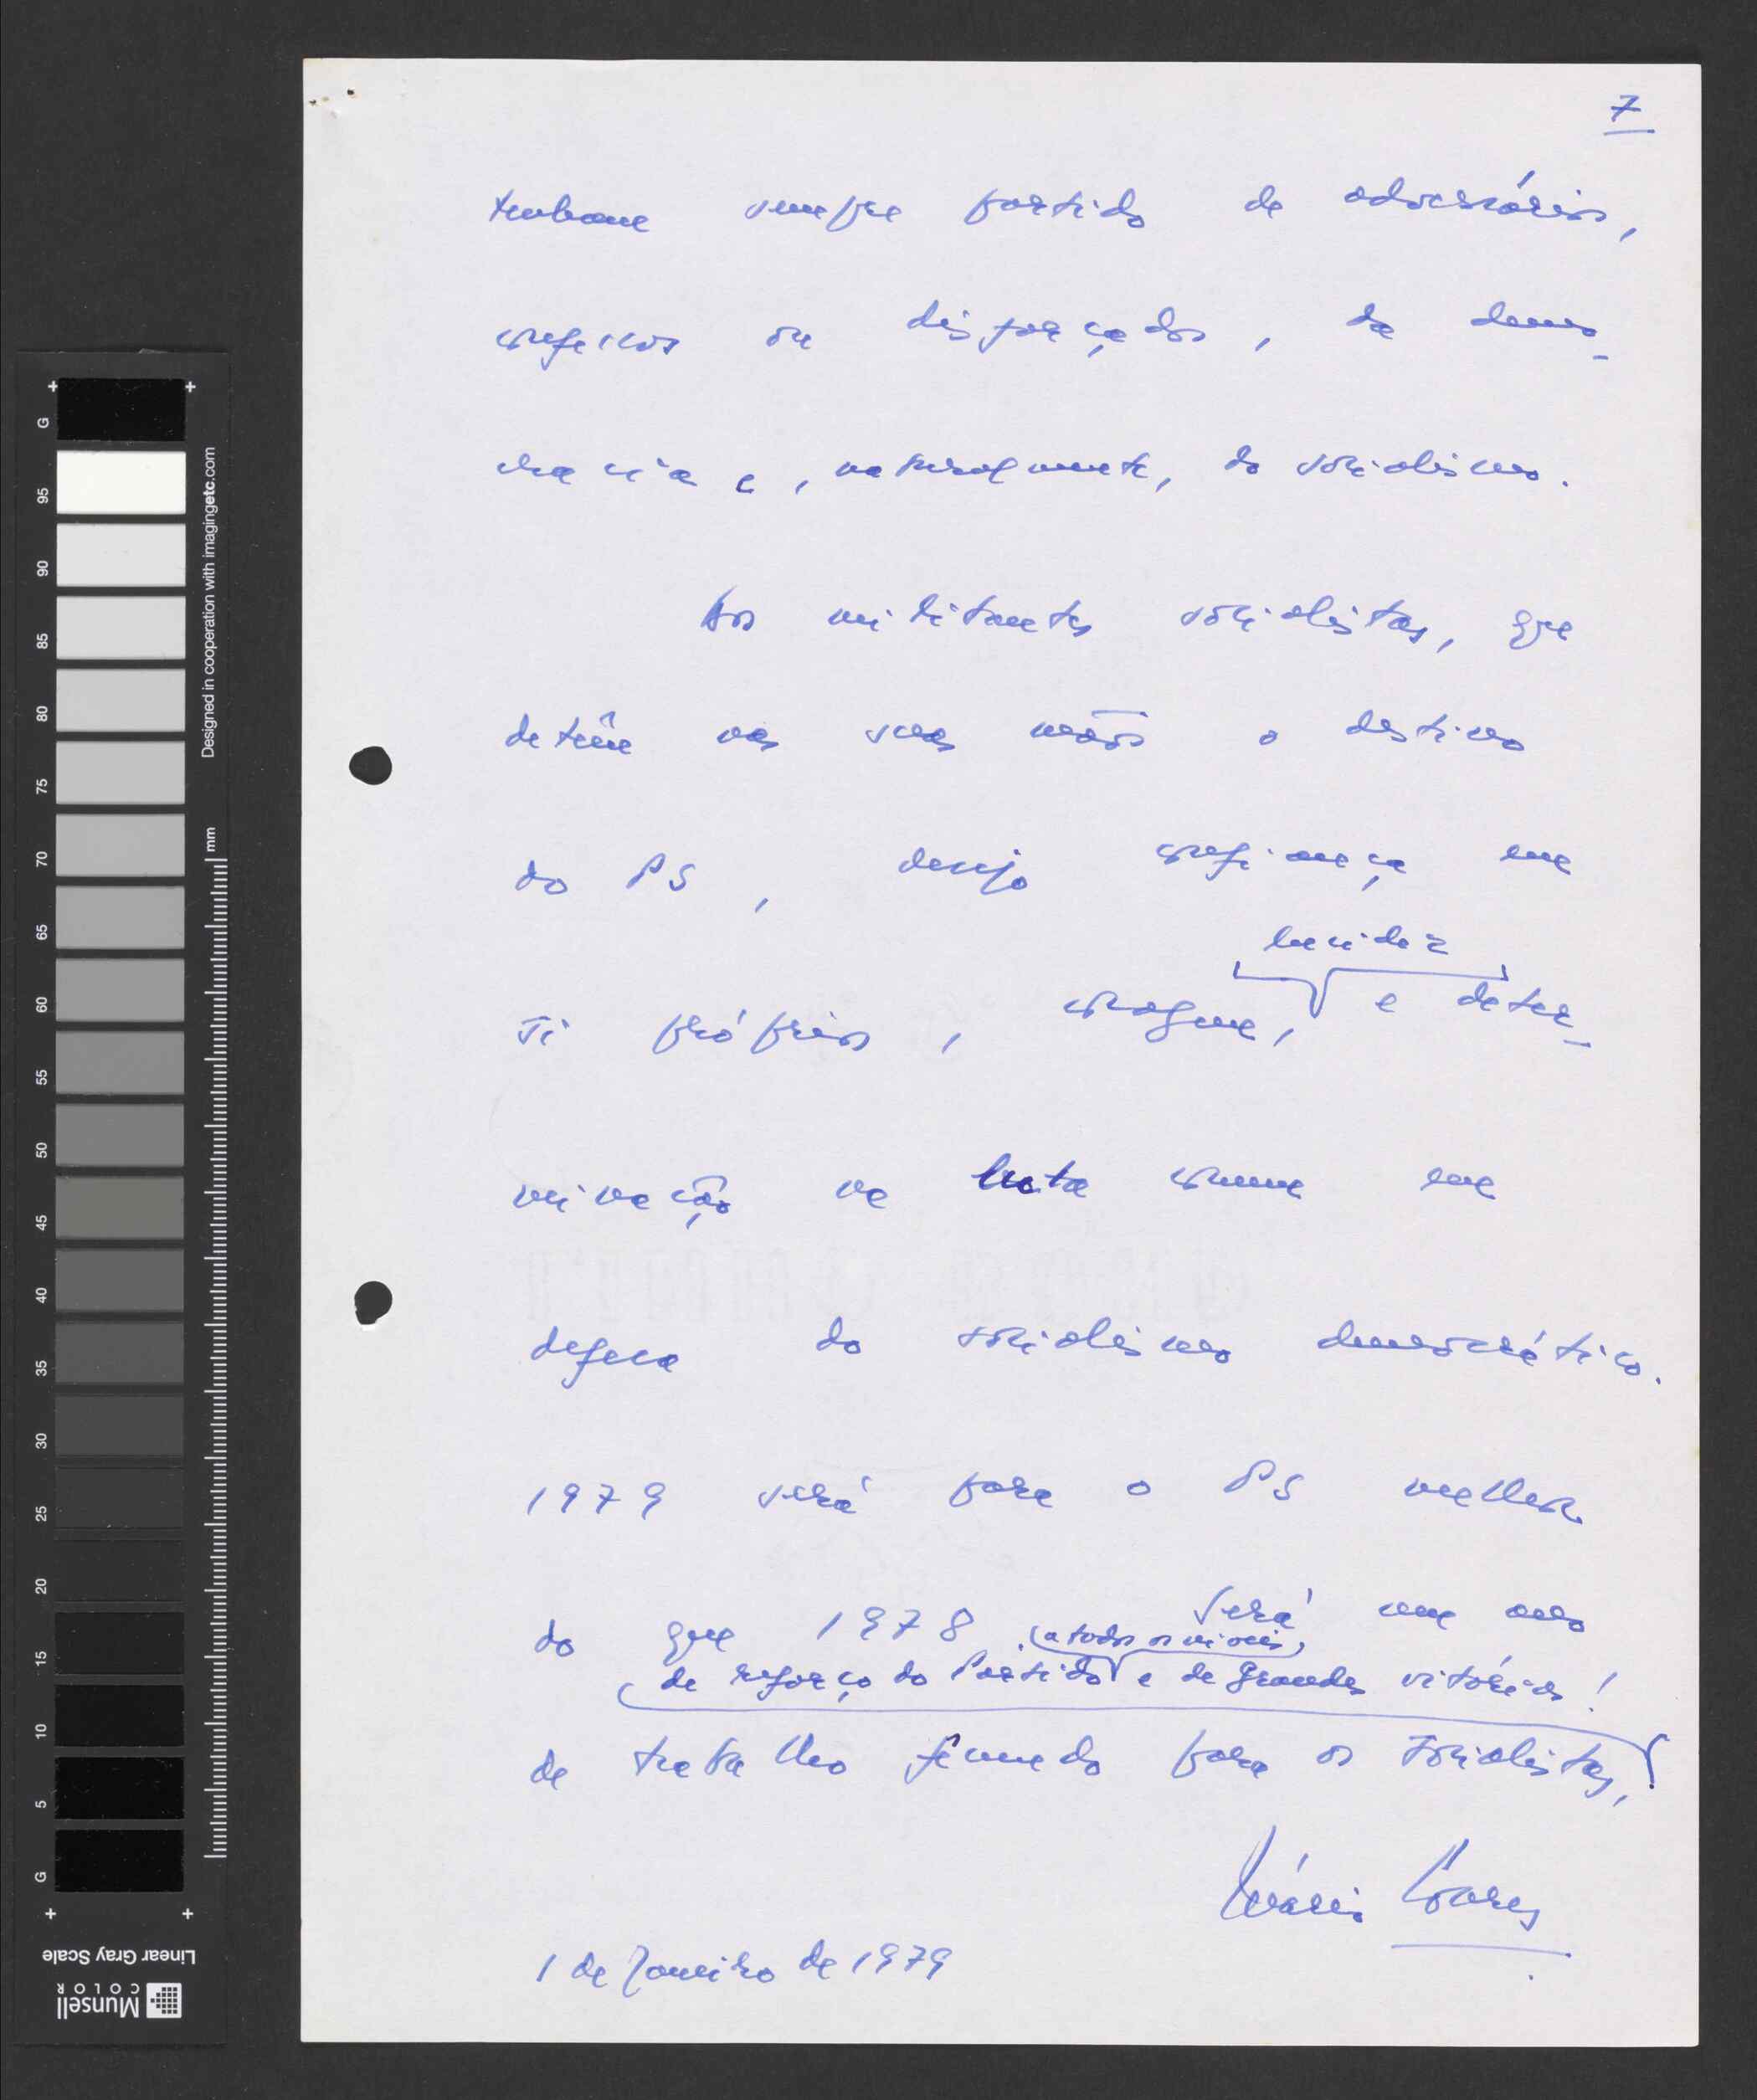 7
tenham sempre partido de adversários,
confessos ou disfarçados, da demo-
cracia e, naturalmente, do socialismo.
Aos militantes socialistas, que
detêm nas suas mãos o destino
do PS, desejo confiança em
lucidez
si próprios, coragem, e deter-
minação na luta comum em
defesa do socialismo democrático.
1979 será para o PS melhor
do que 1978. Será um ano
(a todos os níveis,
de reforço do Partido e de grandes vitórias!
de trabalho fecundo para os socialistas,
Mário Soares
1 de Janeiro de 1979
G
95
90
85
80
75
70
65
60
55
50
45
40
35
30
25
20
15
10
5
G
Designed in cooperation with imagingetc.com
mm
Linear Gray Scale
Munsell
COLOR